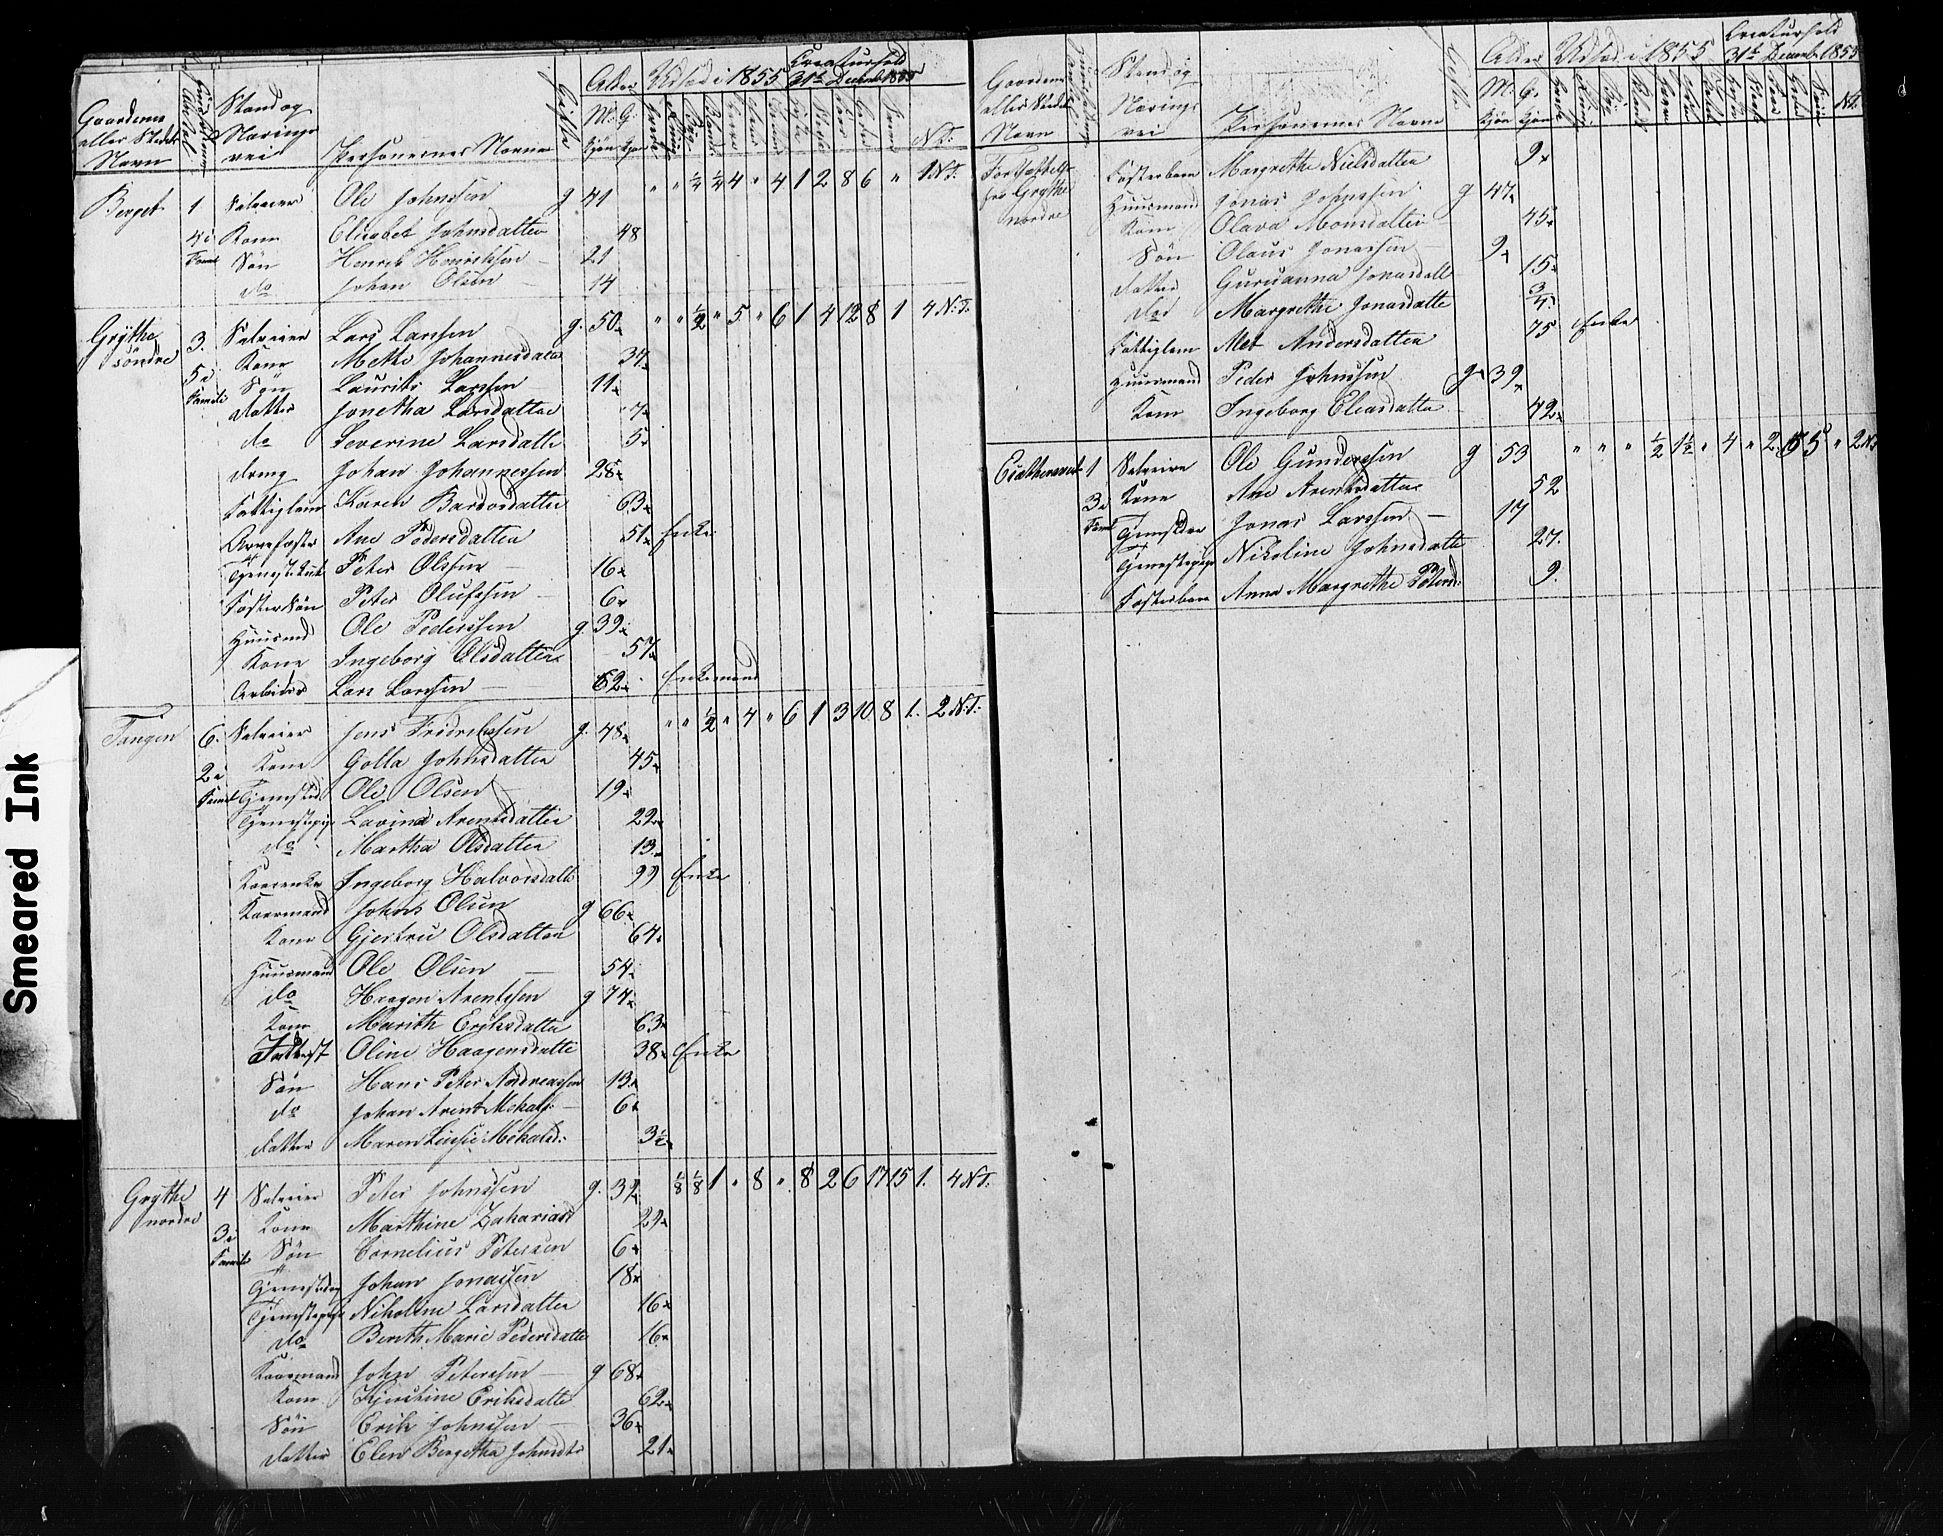 Smeared Ink
Gaardenes eller Stedets Navn Stand og Nærings vei Personernes Navne Gifte Alder Udsæd i 1855 Creaturhold 31te Decemb 1855
M. Kjön Q. Kjön N.T.
Berget 1 Selveier Ole Johnssen g 41 " " ¼ ¼ 4 " 4 1 2 8 6 " 1 N.T.
Kone Elisabet Johnsdatter 48
Søn Henrik Henrikssen 21
do Johan Olsen 14
Grythe søndre 3. Selveier Lars Larssen g. 50 " " ½ " 5 " 6 1 4 12 8 1 4 N.T.
Kone Mette Johannesdatter 37
5 Famili Søn Laurits Larssen 11
Datter Jonetha Larsdatter 7
do Severine Larsdatter 5
Dreng Johan Johannessen 28
Fattiglem Karen Bardosdatter 63
Ane Pedersdatter 51 Enke
Peter Olssen 16
Foster Søn Peter Olufssen 6
Huusmd Ole Pederssen g. 39
Kone Ingeborg Olsdatter 57
Arbeider Lars Larssen 62 Enkemand
Tangen 6. Selveier Jens Fridrikssen g. 48 " " ½ " 4 " 6 1 3 10 8 1. 2 N.T.
2 Kone Golla Johnsdatter 45
Ole Olsen 19
Tjenestepige Lavina Arentsdatter 22
do Martha Olsdatter 13
Kaarenke Ingeborg Halvorsdatt 99 Enke
Kaarmand Johns Olsen g 66
Kone Gjertru Olsdatter 64
Huusmand Ole Olsen 54
do Haagen Arentssen g 74
Kone Marith Eriksdatter 63
Oline Haagensdatte 38 Enke
Søn Hans Peter Andreassen 13
do Johan Arent Mikals. 6
Datter Maren Mikalsd. 3½
Grythe nordre 4 Selveier Peter Johnssen g. 39 ⅛ ⅛ 1 " 8 " 8 2 6 17 15 1. 4 N.T.
3 Famili Kone Marthine Zakariasd 29
Søn Cornelius Peterssen 6
Johan Jonassen 18
Tjenestepige Nikoline Larsdatter 16
do Berith Marie Pedersdatte 16
Kaarmand John Peterssen g 68
Kone Kjerstine Eriksdatte 62
Søn Erik Johnssen 36
Datter Elen Bergetha Johnsdtr 21
Gaardens eller Stedets Navn Stand og Nærings vei Personernes Navne Gifte Alder Udsæd i 1855 Creaturhold 31te Decemb 1855
M. Kjön Q. Kjön N.T.
Fortsættelse fra Grythe nordre Fosterbarn Margrethe Nielsdatter 9
Huusmand Jonas Johnssen g 47
Kone Olava Monsdatter 45
Søn Olaus Jonassen 9
Datter Guruanna Jonasdatt 15
do Margrethe Jonasdatte ¾
Fattiglem Met Andersdatter 75 Enke
Huusmand Peder Johnssen g 39
Kone Ingeborg Eliasdatter 42
1 Selveier Ole Gunderssen g 53 " " " ½ 1½ " 4 " 2 5 " 2 N.T.
3 Kone Ane Arentsdatter 52
Jonas Larssen 17
Tjenestepige Nikoline Johnsdatte 27.
Fosterbarn Anna Margrethe Petersd: 9.